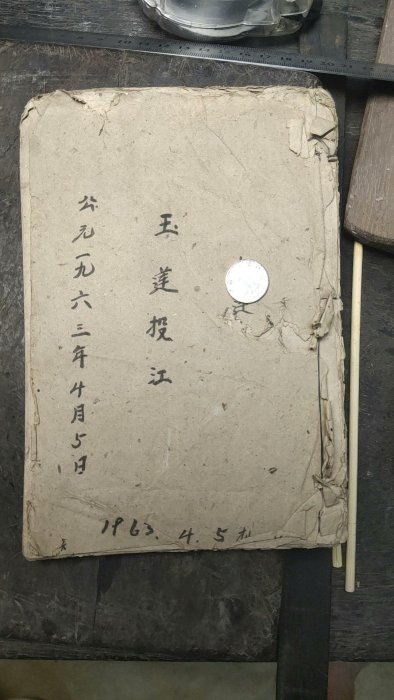 玉莲投江
公元一九六三年4月5日
1963. 4. 5